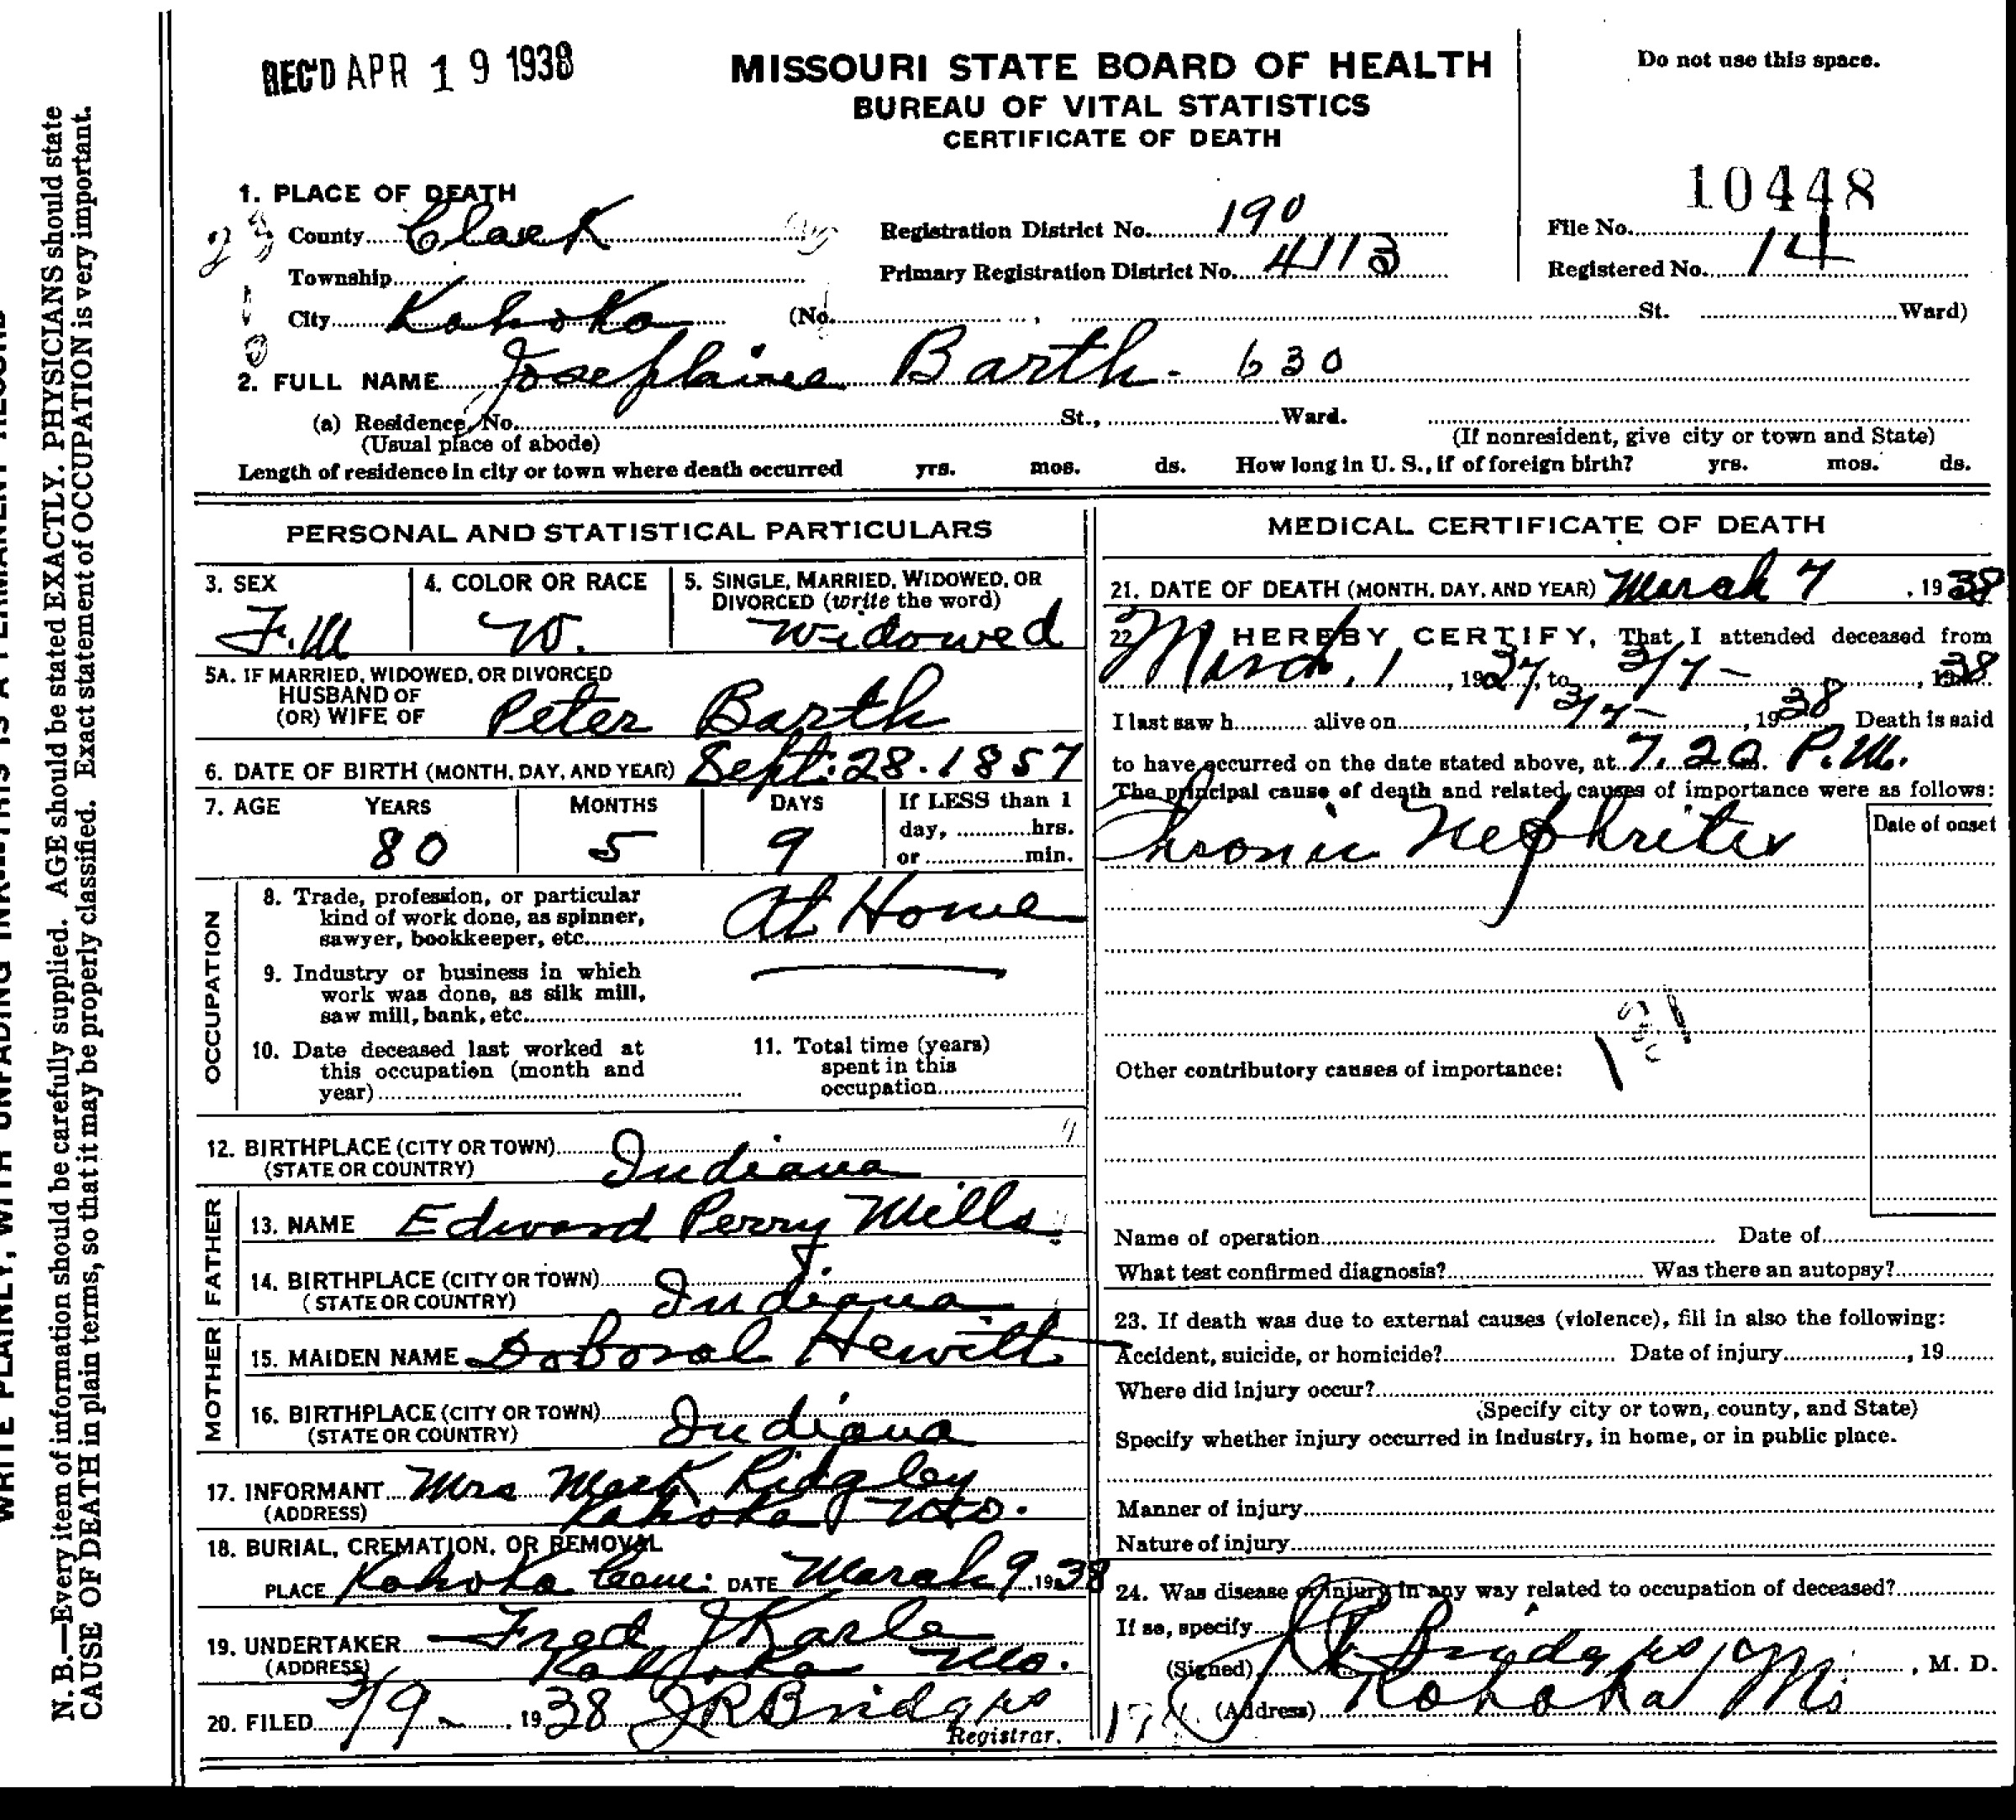 REC'D APR 19 1938
MISSOURI STATE BOARD OF HEALTH
BUREAU OF VITAL STATISTICS
CERTIFICATE OF DEATH
Do not use this space.
10448
1. PLACE OF DEATH
County Clark
Registration District No. 190
File No.
Township
Primary Registration District No. 4113
Registered No. 14
City Kahoka (No. , St. Ward)
2. FULL NAME Josephine Barth - 630
(a) Residence, No. St., Ward.
(Usual place of abode) (If nonresident, give city or town and State)
Length of residence in city or town where death occurred yrs. mos. ds. How long in U. S., if of foreign birth? yrs. mos. ds.
PERSONAL AND STATISTICAL PARTICULARS
3. SEX 4. COLOR OR RACE 5. SINGLE, MARRIED, WIDOWED, OR
DIVORCED (write the word)
F.M W. Widowed
5A. IF MARRIED, WIDOWED, OR DIVORCED
HUSBAND OF
(OR) WIFE OF Peter Barth
6. DATE OF BIRTH (MONTH, DAY, AND YEAR) Sept. 28. 1857
7. AGE YEARS MONTHS DAYS If LESS than 1
day, hrs.
or min.
80 5 9
OCCUPATION
8. Trade, profession, or particular
kind of work done, as spinner,
sawyer, bookkeeper, etc. At Home
9. Industry or business in which
work was done, as silk mill,
saw mill, bank, etc.
10. Date deceased last worked at
this occupation (month and
year)
11. Total time (years)
spent in this
occupation
12. BIRTHPLACE (CITY OR TOWN)
(STATE OR COUNTRY) Indiana
FATHER
13. NAME Edward Perry Mills
14. BIRTHPLACE (CITY OR TOWN)
(STATE OR COUNTRY) Indiana
MOTHER
15. MAIDEN NAME Doboral Hewitt
16. BIRTHPLACE (CITY OR TOWN)
(STATE OR COUNTRY) Indiana
17. INFORMANT Mrs Mark Ridgley
(ADDRESS) Kahoka Mo.
18. BURIAL, CREMATION, OR REMOVAL
PLACE Kahoka Cem. DATE March 9 1938
19. UNDERTAKER Fred J Karle
(ADDRESS) Kahoka Mo.
20. FILED 3/9 - , 1938 JR Bridges
Registrar.
MEDICAL CERTIFICATE OF DEATH
21. DATE OF DEATH (MONTH, DAY, AND YEAR) March 7 , 1938
22. I HEREBY CERTIFY, That I attended deceased from
March 1 , 1937, to 3/7 - , 1938
I last saw h alive on 3/7 - , 1938 Death is said
to have occurred on the date stated above, at 7.20 P.M.
The principal cause of death and related causes of importance were as follows:
Date of onset
Chronic Nephritis
Other contributory causes of importance:
Name of operation Date of
What test confirmed diagnosis? Was there an autopsy?
23. If death was due to external causes (violence), fill in also the following:
Accident, suicide, or homicide? Date of injury , 19
Where did injury occur?
(Specify city or town, county, and State)
Specify whether injury occurred in industry, in home, or in public place.
Manner of injury
Nature of injury
24. Was disease or injury in any way related to occupation of deceased?
If so, specify
(Signed) J R Bridges M , M. D.
(Address) Kahoka Mo
N. B.—Every item of information should be carefully supplied. AGE should be stated EXACTLY. PHYSICIANS should state
CAUSE OF DEATH in plain terms, so that it may be properly classified. Exact statement of OCCUPATION is very important.